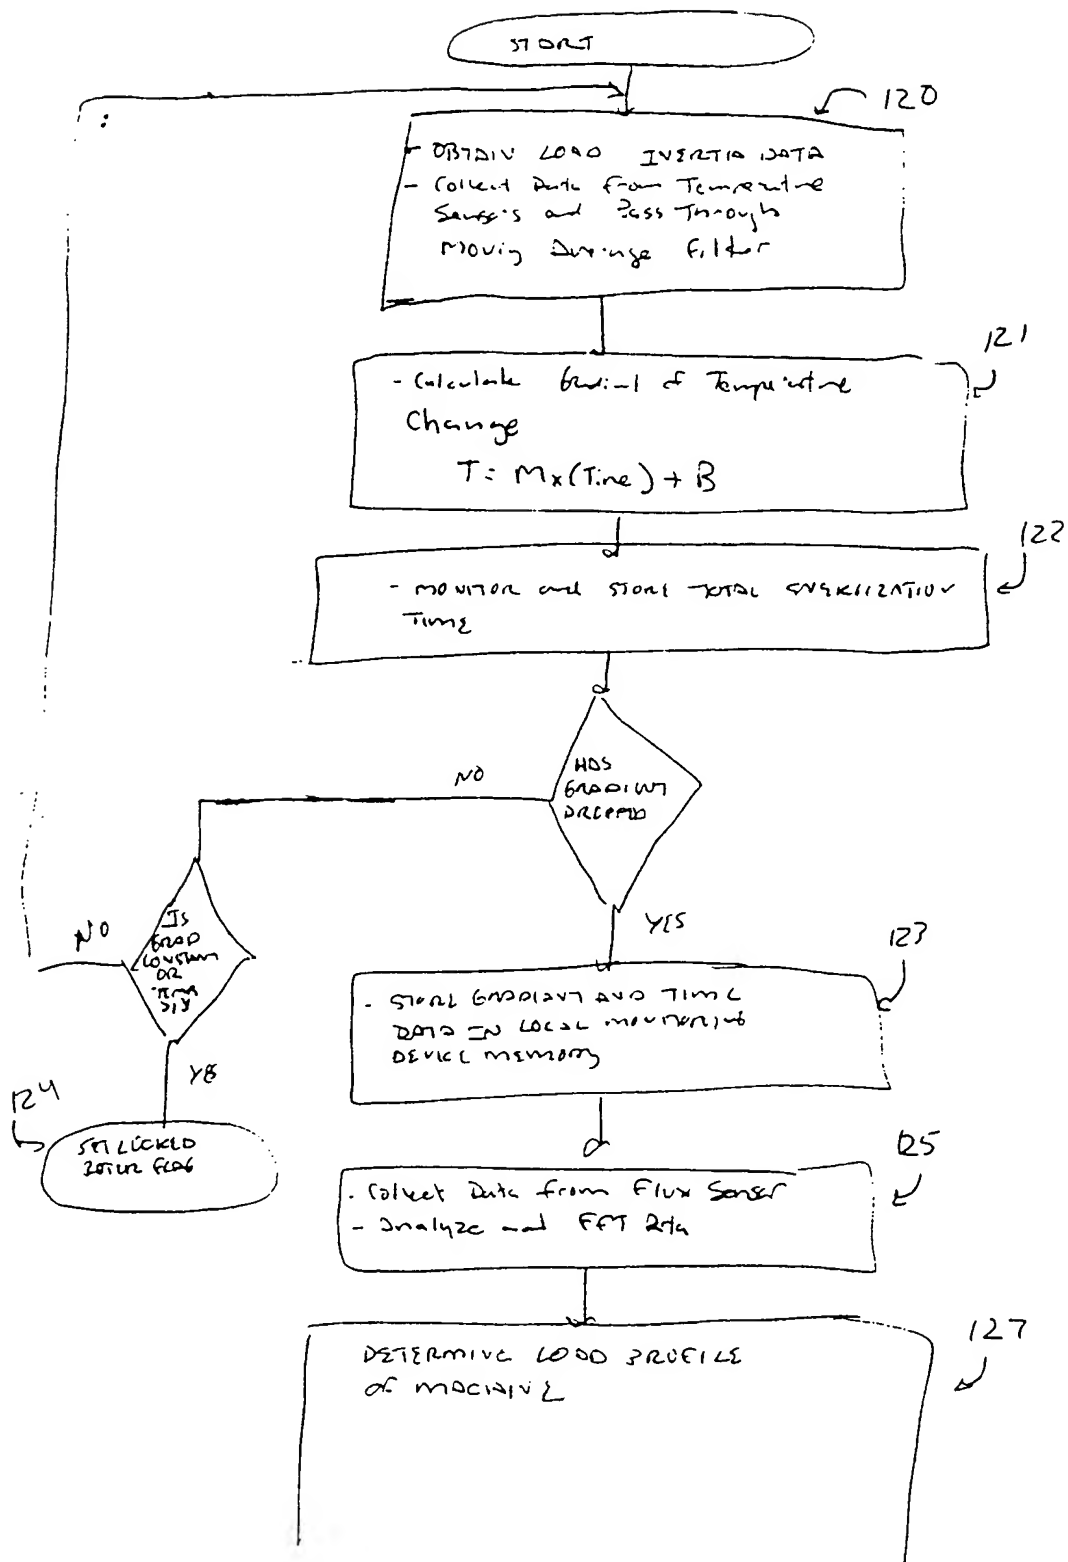 START
120
- OBTAIN LOAD INERTIA DATA
- Collect Data from Temperature
Sensors and Pass Through
Moving Average Filter
121
- Calculate Gradient of Temperature
Change
T = M x (Time) + B
122
- MONITOR and STORE TOTAL ENERGIZATION
TIME
HAS
GRADIENT
DROPPED
NO
YES
IS
GRAD
CONSTANT
OR
NO
YES
123
- STORE GRADIENT AND TIME
DATA IN LOCAL MONITORING
DEVICE MEMORY
124
SET LOCKED
ROTOR FLAG
125
- Collect Data from Flux Sensor
- Analyze and FFT Data
127
DETERMINE LOAD PROFILE
of MACHINE